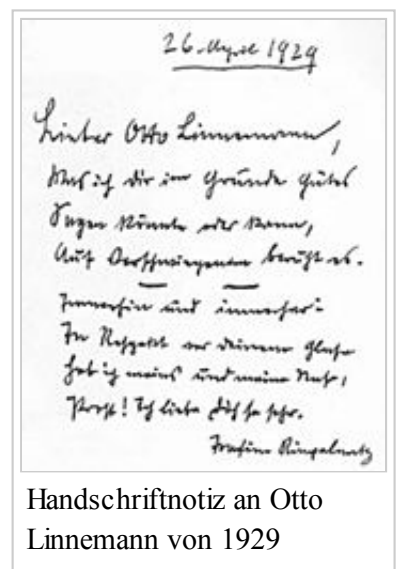 26. April 1929
Lieber Otto Linnemann,
Was ich dir im Grunde Gutes
Sagen könnte oder kann,
Auf Verschwiegenem beruht es.
Immerhin und immerher:
In Respekt vor deinem Glase
Heb ich meins und meine Nase,
Prost! Ich liebe Dich so sehr.
Joachim Ringelnatz
Handschriftnotiz an Otto
Linnemann von 1929